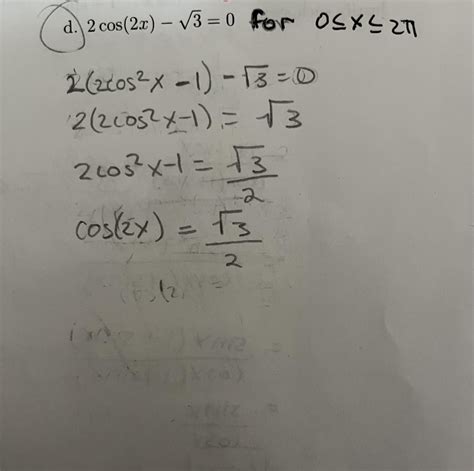 d. 2 cos(2x) − √3 = 0 for 0 ≤ x ≤ 2π
2(2cos²x − 1) − √3 = 0
2(2cos²x − 1) = √3
2cos²x − 1 = √3/2
cos(2x) = √3/2